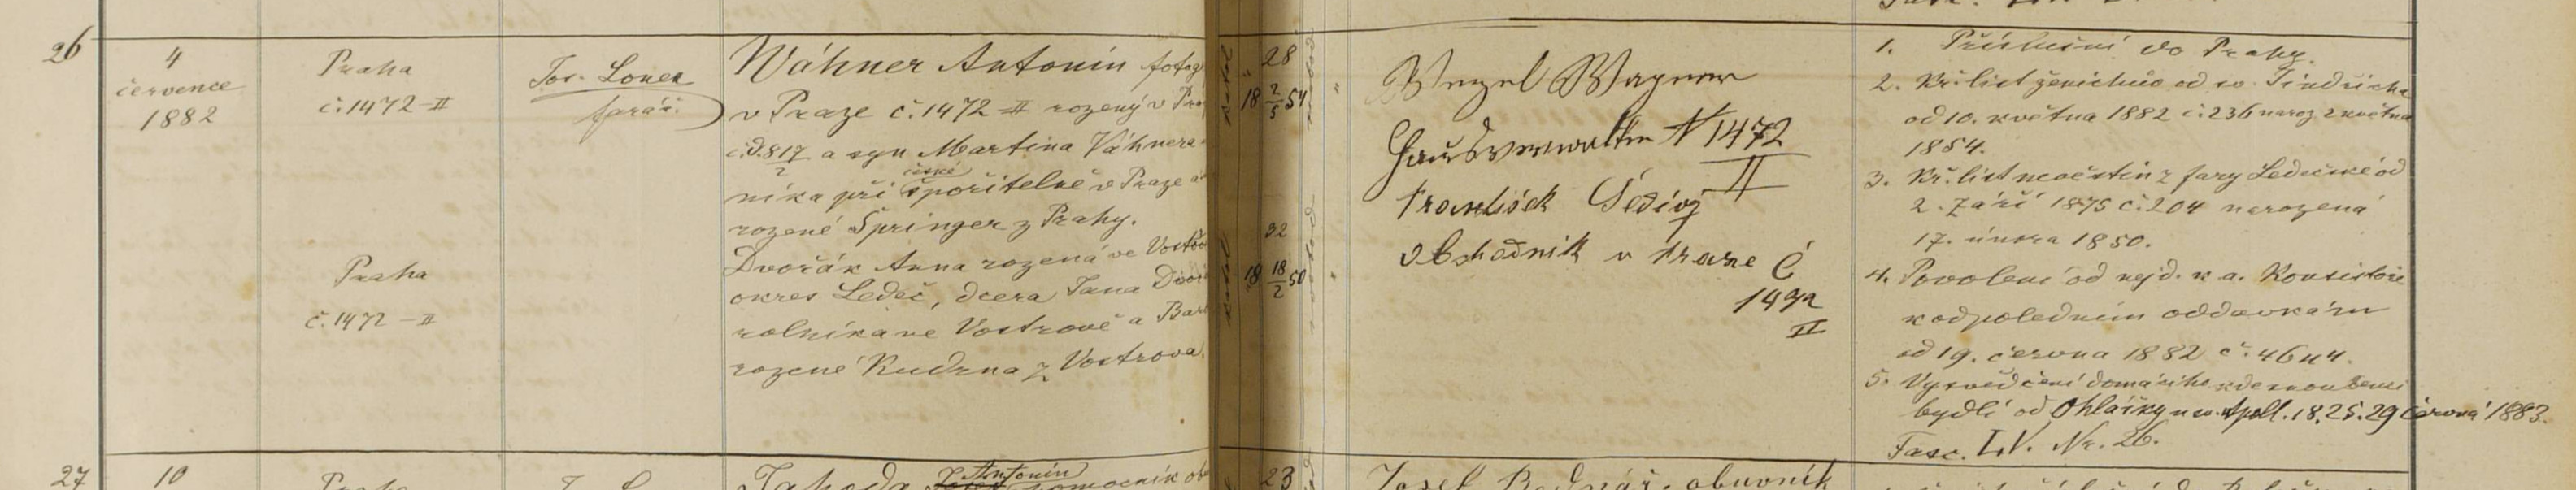 26
4
července
1882
Praha
č. 1472-II
Praha
č. 1472-II
Jos. Loner
farář.
Wáhner Antonín fotog
v Praze č. 1472-II rozený v Pra
č.d. 817/2 a syn Martina Váhnera
níka při české spořitelně v Praze a
rozené Špringer z Prahy.
Dvořák Anna rozená ve Vostro
okres Ledeč, dcera Jana Dvoř
rolníka ve Vostrově a Bar
rozené Kudrna z Vostrova.
28
18 2/5 54
32
18 18/2 50
Wenzel Wagner
Hausverwalter N 1472
II
František Šedivý
obchodník v Praze č
1472
II
1. Příslušní do Prahy.
2. Kř. list ženichův od sv. Jindřicha
od 10. května 1882 č. 236 naroz. 2 května
1854.
3. Kř. list nevěstin z fary Ledečské od
2. září 1875 č. 204 narozená
17. února 1850.
4. Povolení od nejd. k. a. Konsistoře
k odpoledním oddavkám
od 19. června 1882 č. 4644.
5. Vysvědčení domácího kde snoubenci
bydlí od Ohlášky u sv. Apoll. 18. 25. 29 června 1883.
Fasc. LV. Nr. 26.
27
10
Praha
Jahoda Antonín pomocník ob
23
Josef Bednář, obuvník